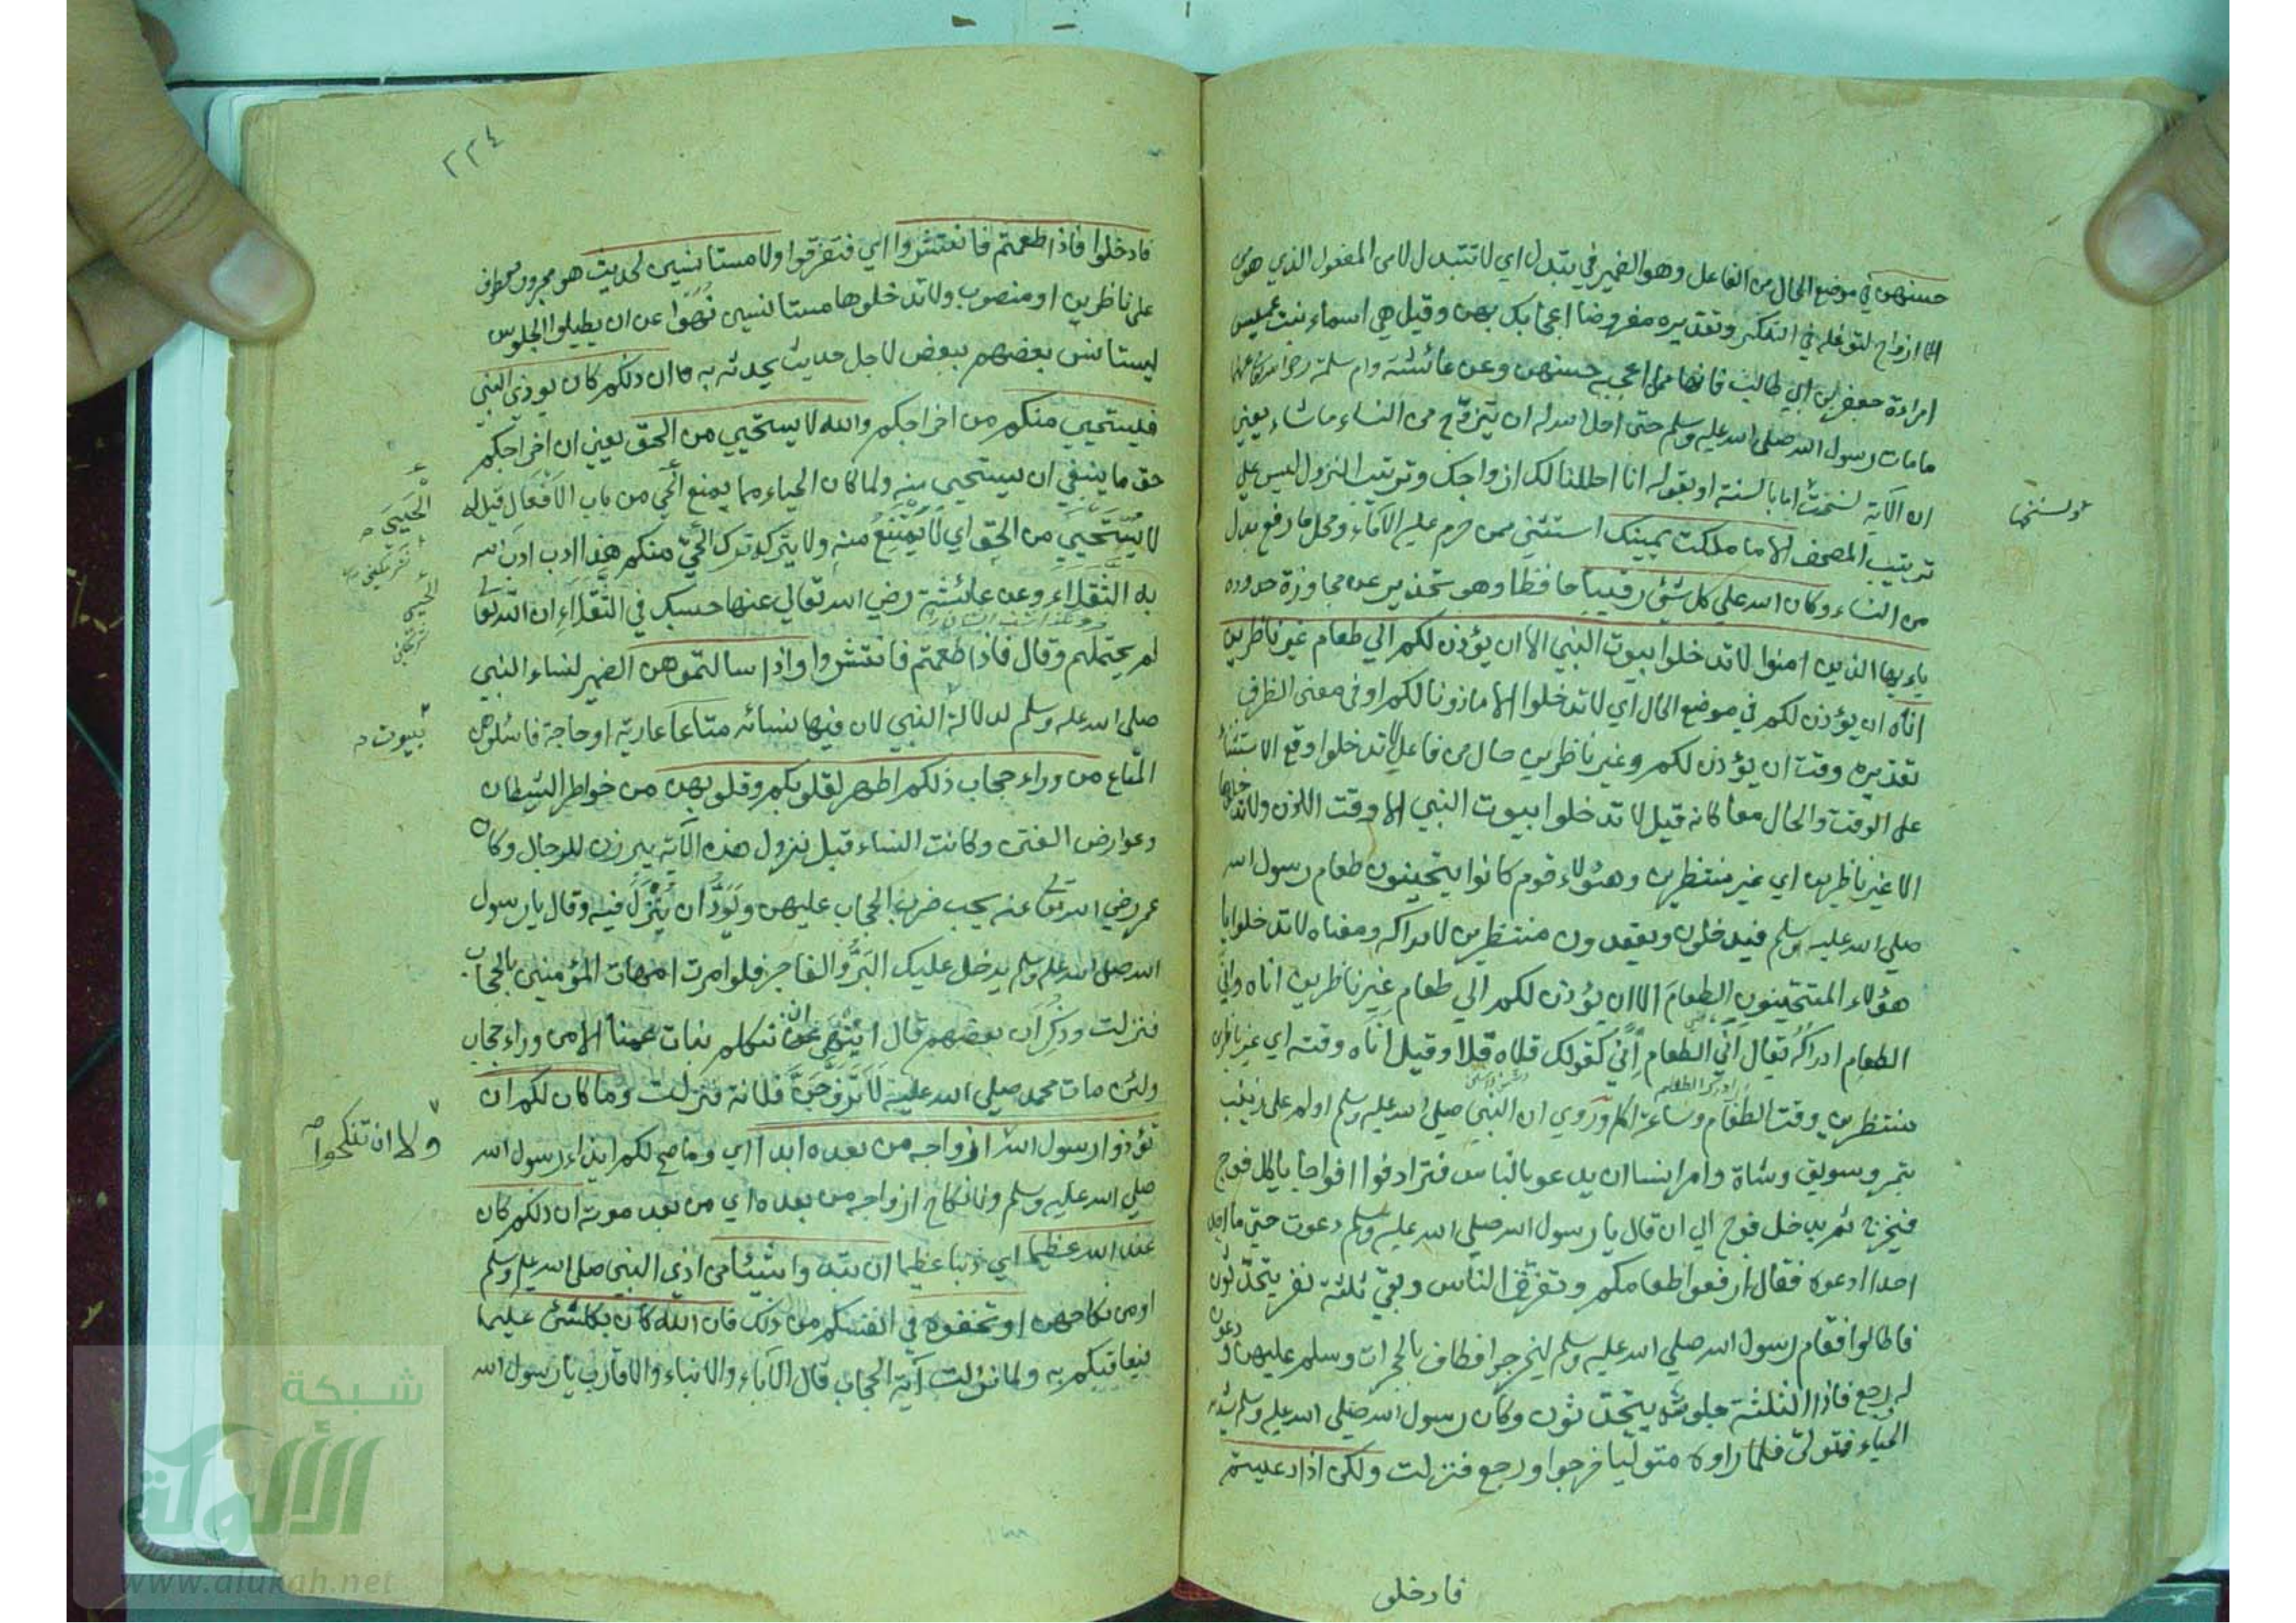 حسنهن في موضع الحال من الفاعل وهو الضمير في يتبدل اي لا تتبدل لا من المفعول الذي هو من
ازواج لتوغله في التنكير وتقديره مفروضا اعجابك بهن وقيل هي اسماء بنت عميس
امراءة جعفر بن ابي طالب فانها ممن اعجبه حسنهن وعن عائشة وام سلمة
ما مات رسول الله صلى الله عليه وسلم حتى احل الله له ان يتزوج من النساء ما شاء يعني
ان الآية نسخت اما بالسنة او بقوله انا احللنا لك ازواجك وترتيب النزول ليس علي
ترتيب المصحف الا ما ملكت يمينك استثني ممن حرم عليه الاماء ومحل ما رفع بدل
من النساء وكان الله علي كل شئ رقيبا حافظا وهو تحذير عن مجاوزة حدوده
يا ايها الذين امنوا لا تدخلوا بيوت النبي الا ان يؤذن لكم الي طعام غير ناظرين
اناه ان يؤذن لكم في موضع الحال اي لا تدخلوا الا ماذونا لكم او في معنى الظرف
تقديره وقت ان يؤذن لكم وغير ناظرين حال من فاعل لا تدخلوا وقع الاستثناء
على الوقت والحال معا كانه قيل لا تدخلوا بيوت النبي الا وقت الاذن ولا تدخلوها
الا غير ناظرين اي غير منتظرين وهؤلاء قوم كانوا يتحينون طعام رسول الله
صلي الله عليه وسلم فيدخلون ويقعدون منتظرين لادراكه ومعناه لا تدخلوا يا
هؤلاء المتحينون الطعام الا ان يؤذن لكم الي طعام غير ناظرين اناه واني
الطعام ادراكه يقال اني الطعام اني كقولك قلاه قلا وقيل اناه وقته اي غير ناظرين
ادراك الطعام
منتظرين وقت الطعام وساعة اكله وروي ان النبي صلي الله عليه وسلم اولم على زينب
بتمر وسويق وشاة وامر انسا ان يدعو بالناس فترادفوا افواجا ياكل فوج
فيخرج ثم يدخل فوج الي ان قال يا رسول الله صلي الله عليه وسلم دعوت حتي ما اجد
احدا ادعوه فقال ارفعوا طعامكم وتفرق الناس وبقي ثلثة نفر يتحدثون
فاطالوا فقام رسول الله صلي الله عليه وسلم ليخرجوا فطاف بالحجرات وسلم عليهن ودعون
له ورجع فاذا الثلثة جلوس يتحدثون وكان رسول الله صلي الله عليه وسلم شديد
الحياء فتولى فلما راوه متوليا خرجوا ورجع فنزلت ولكن اذا دعيتم
فادخلو
٢٢٤
فادخلوا فاذا طعمتم فانتشروا اي فتفرقوا ولا مستانسين لحديث هو مجرور معطوف
على ناظرين او منصوب ولا تدخلوها مستانسين نهوا عن ان يطيلوا الجلوس
ليستانس بعضهم ببعض لاجل حديث يحدثه به ان ذلكم كان يوذي النبي
فيستحيي منكم من اخراجكم والله لا يستحيي من الحق يعني ان اخراجكم
حق ما ينبغي ان يستحيي منه ولما كان الحياء مما يمنع الحي من باب الافعال قيل له
لا يستحيي من الحق اي لا يمتنع منه ولا يتركه ترك الحي منكم هذا ادب ادب الله
به الثقلاء وعن عائشة رضي الله تعالي عنها حسبك في الثقلاء ان الله تعالى
لم يحتملهم وقال فاذا طعمتم فانتشروا واذا سالتموهن الضمير لنساء النبي
صلى الله عليه وسلم لدلالة النبي لان فيها نسائه متاعا عارية او حاجة فاسئلوهن
المتاع من وراء حجاب ذلكم اطهر لقلوبكم وقلوبهن من خواطر الشيطان
وعوارض الفتن وكانت النساء قبل نزول هذه الآية يبرزن للرجال وكان
عمر رضي الله تعالى عنه يحب ضرب الحجاب عليهن ويود ان ينزل فيه وقال يا رسول
الله صلى الله عليه وسلم يدخل عليك البر والفاجر فلو امرت امهات المؤمنين بالحجاب
فنزلت وذكر ان بعضهم قال اننهى ان نكلم بنات عمنا الا من وراء حجاب
ولئن مات محمد صلي الله عليه لاتزوجن فلانة فنزلت وما كان لكم ان
تؤذوا رسول الله ازواجه من بعده ابدا اي وما صح لكم ايذاء رسول الله
صلي الله عليه وسلم ولا نكاح ازواجه من بعده اي من بعد موته ان ذلكم كان
عند الله عظيما اي ذنبا عظيما ان تبدوا شيئا من اذي النبي صلى الله عليه وسلم
او من نكاحهن او تخفوه في انفسكم من ذلك فان الله كان بكل شئ عليما
فيعاقبكم به ولما نزلت آية الحجاب قال الآباء والابناء والاقارب يا رسول الله
بيوت
ولا ان تنكحوا
شبكة
الألوكة
www.alukah.net